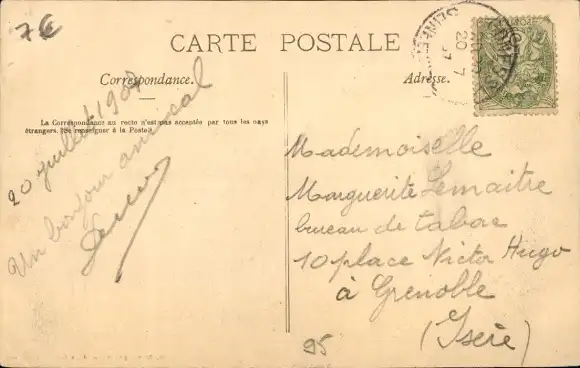 7€
CARTE POSTALE
Correspondance.
Adresse.
La Correspondance au recto n'est pas acceptée par tous les pays
étrangers. (Se renseigner à la Poste)
20 juillet 1907
Un bonjour amical
Mademoiselle
Marguerite Lemaitre
bureau de tabac
10 place Victor Hugo
à Grenoble
(Isère)
95